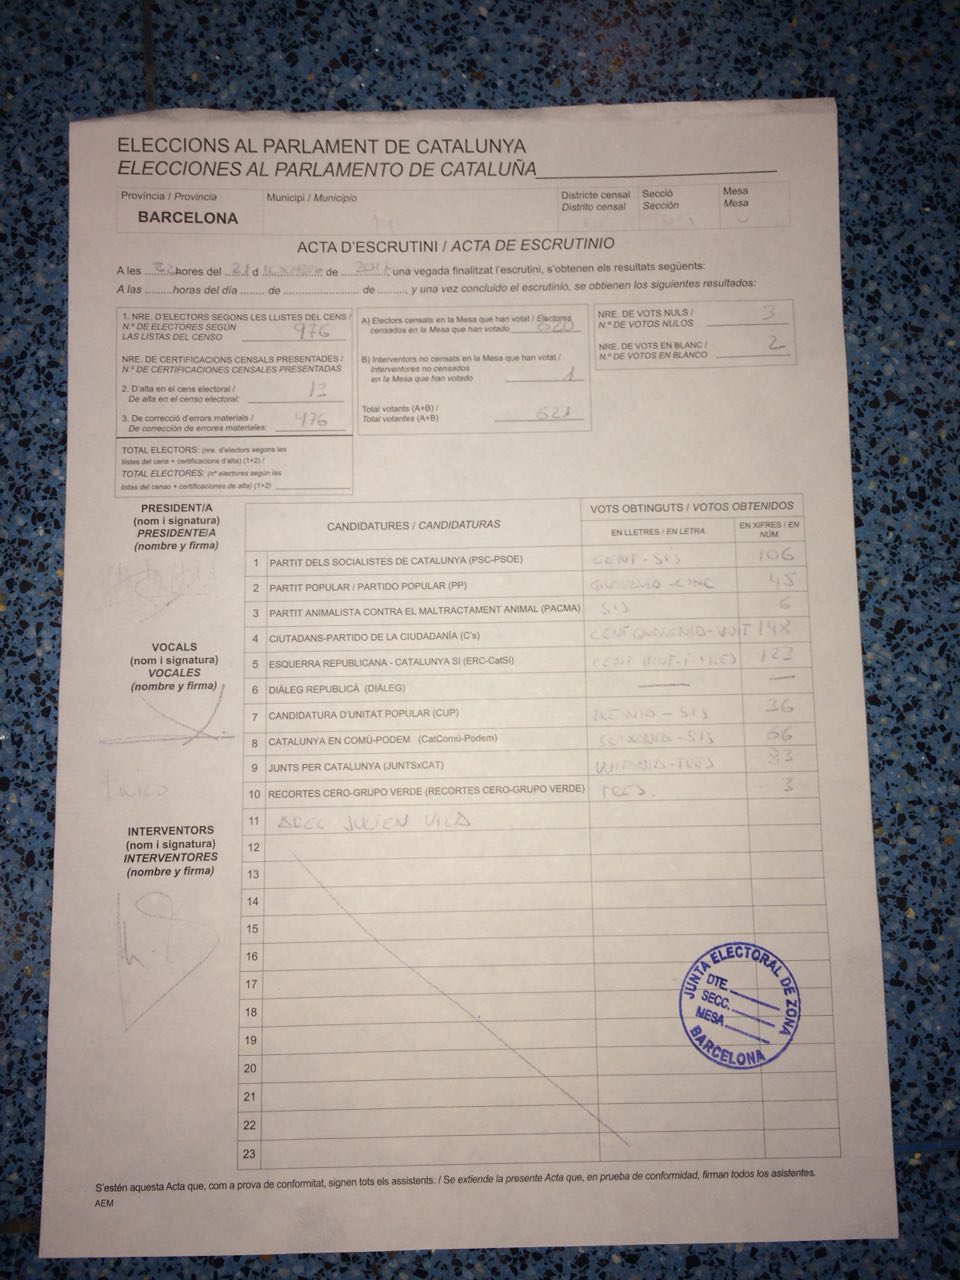 ELECCIONS AL PARLAMENT DE CATALUNYA
ELECCIONES AL PARLAMENTO DE CATALUÑA
Província / Provincia
Municipi / Municipio
Districte censal
Distrito censal
Secció
Sección
Mesa
Mesa
BARCELONA
ACTA D'ESCRUTINI / ACTA DE ESCRUTINIO
A les ......... hores del 21 d ............ de 2017, una vegada finalitzat l'escrutini, s'obtenen els resultats següents:
A las .........horas del día ....... de ...................... de ........, y una vez concluido el escrutinio, se obtienen los siguientes resultados:
1. NRE. D'ELECTORS SEGONS LES LLISTES DEL CENS /
N.º DE ELECTORES SEGÚN
LAS LISTAS DEL CENSO 976
NRE. DE CERTIFICACIONS CENSALS PRESENTADES /
N.º DE CERTIFICACIONES CENSALES PRESENTADAS
2. D'alta en el cens electoral /
De alta en el censo electoral: 13
3. De correcció d'errors materials /
De corrección de errores materiales: 976
TOTAL ELECTORS: (nre. d'electors segons les
llistes del cens + certificacions d'alta) (1+2) /
TOTAL ELECTORES: (nº electores según las
listas del censo + certificaciones de alta) (1+2)
A) Electors censats en la Mesa que han votat / Electores
censados en la Mesa que han votado 620
B) Interventors no censats en la Mesa que han votat /
Interventores no censados
en la Mesa que han votado 1
Total votants (A+B) /
Total votantes (A+B) 621
NRE. DE VOTS NULS /
N.º DE VOTOS NULOS 3
NRE. DE VOTS EN BLANC /
N.º DE VOTOS EN BLANCO 2
PRESIDENT/A
(nom i signatura)
PRESIDENTE/A
(nombre y firma)
VOCALS
(nom i signatura)
VOCALES
(nombre y firma)
INTERVENTORS
(nom i signatura)
INTERVENTORES
(nombre y firma)
CANDIDATURES / CANDIDATURAS
VOTS OBTINGUTS / VOTOS OBTENIDOS
EN LLETRES / EN LETRA
EN XIFRES / EN
NÚM.
1 PARTIT DELS SOCIALISTES DE CATALUNYA (PSC-PSOE) CENT-SIS 106
2 PARTIT POPULAR / PARTIDO POPULAR (PP) QUARANTA-CINC 45
3 PARTIT ANIMALISTA CONTRA EL MALTRACTAMENT ANIMAL (PACMA) SIS 6
4 CIUTADANS-PARTIDO DE LA CIUDADANÍA (C's) CENT QUARANTA-VUIT 148
5 ESQUERRA REPUBLICANA - CATALUNYA SI (ERC-CatSí) CENT VINT-I-TRES 123
6 DIÀLEG REPUBLICÀ (DIÀLEG) — —
7 CANDIDATURA D'UNITAT POPULAR (CUP) TRENTA-SIS 36
8 CATALUNYA EN COMÚ-PODEM (CatComú-Podem) SEIXANTA-SIS 66
9 JUNTS PER CATALUNYA (JUNTSxCAT) VUITANTA-TRES 83
10 RECORTES CERO-GRUPO VERDE (RECORTES CERO-GRUPO VERDE) TRES. 3
11 ABEL JULIEN VILA
12
13
14
15
16
17
18
19
20
21
22
23
JUNTA ELECTORAL DE ZONA
DTE.
SECC.
MESA
BARCELONA
S'estén aquesta Acta que, com a prova de conformitat, signen tots els assistents. / Se extiende la presente Acta que, en prueba de conformidad, firman todos los asistentes.
AEM